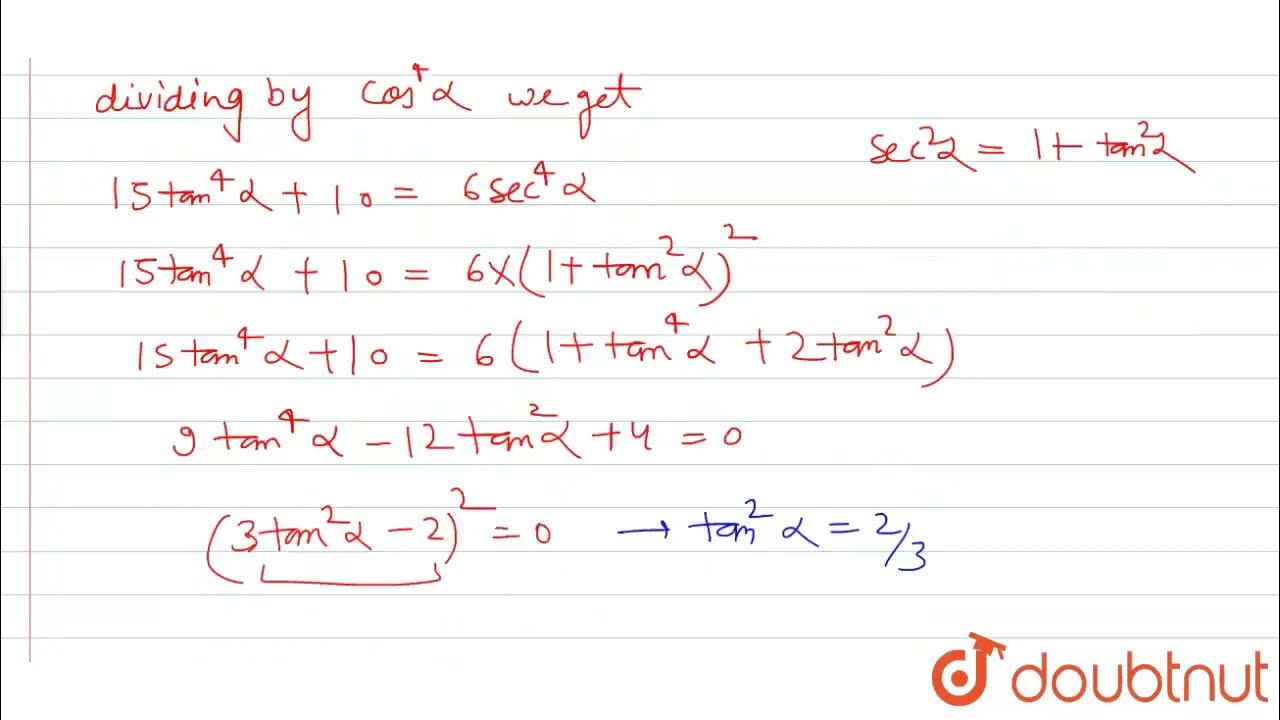 dividing by cos⁴α we get
sec²α = 1 + tan²α
15tan⁴α + 10 = 6sec⁴α
15tan⁴α + 10 = 6×(1+tan²α)²
15tan⁴α + 10 = 6(1+tan⁴α + 2tan²α)
9tan⁴α − 12tan²α + 4 = 0
(3tan²α − 2)² = 0 → tan²α = 2/3
doubtnut